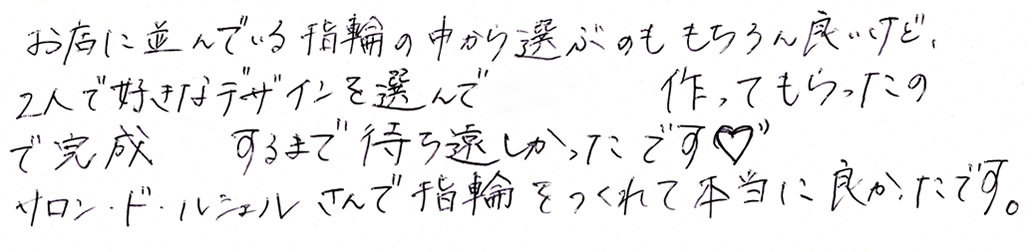 お店に並んでいる指輪の中から選ぶのももちろん良いけど、
2人で好きなデザインを選んで 作ってもらったの
で完成 するまで待ち遠しかったです♡"
サロン・ド・ルシェルさんで指輪をつくれて本当に良かったです。